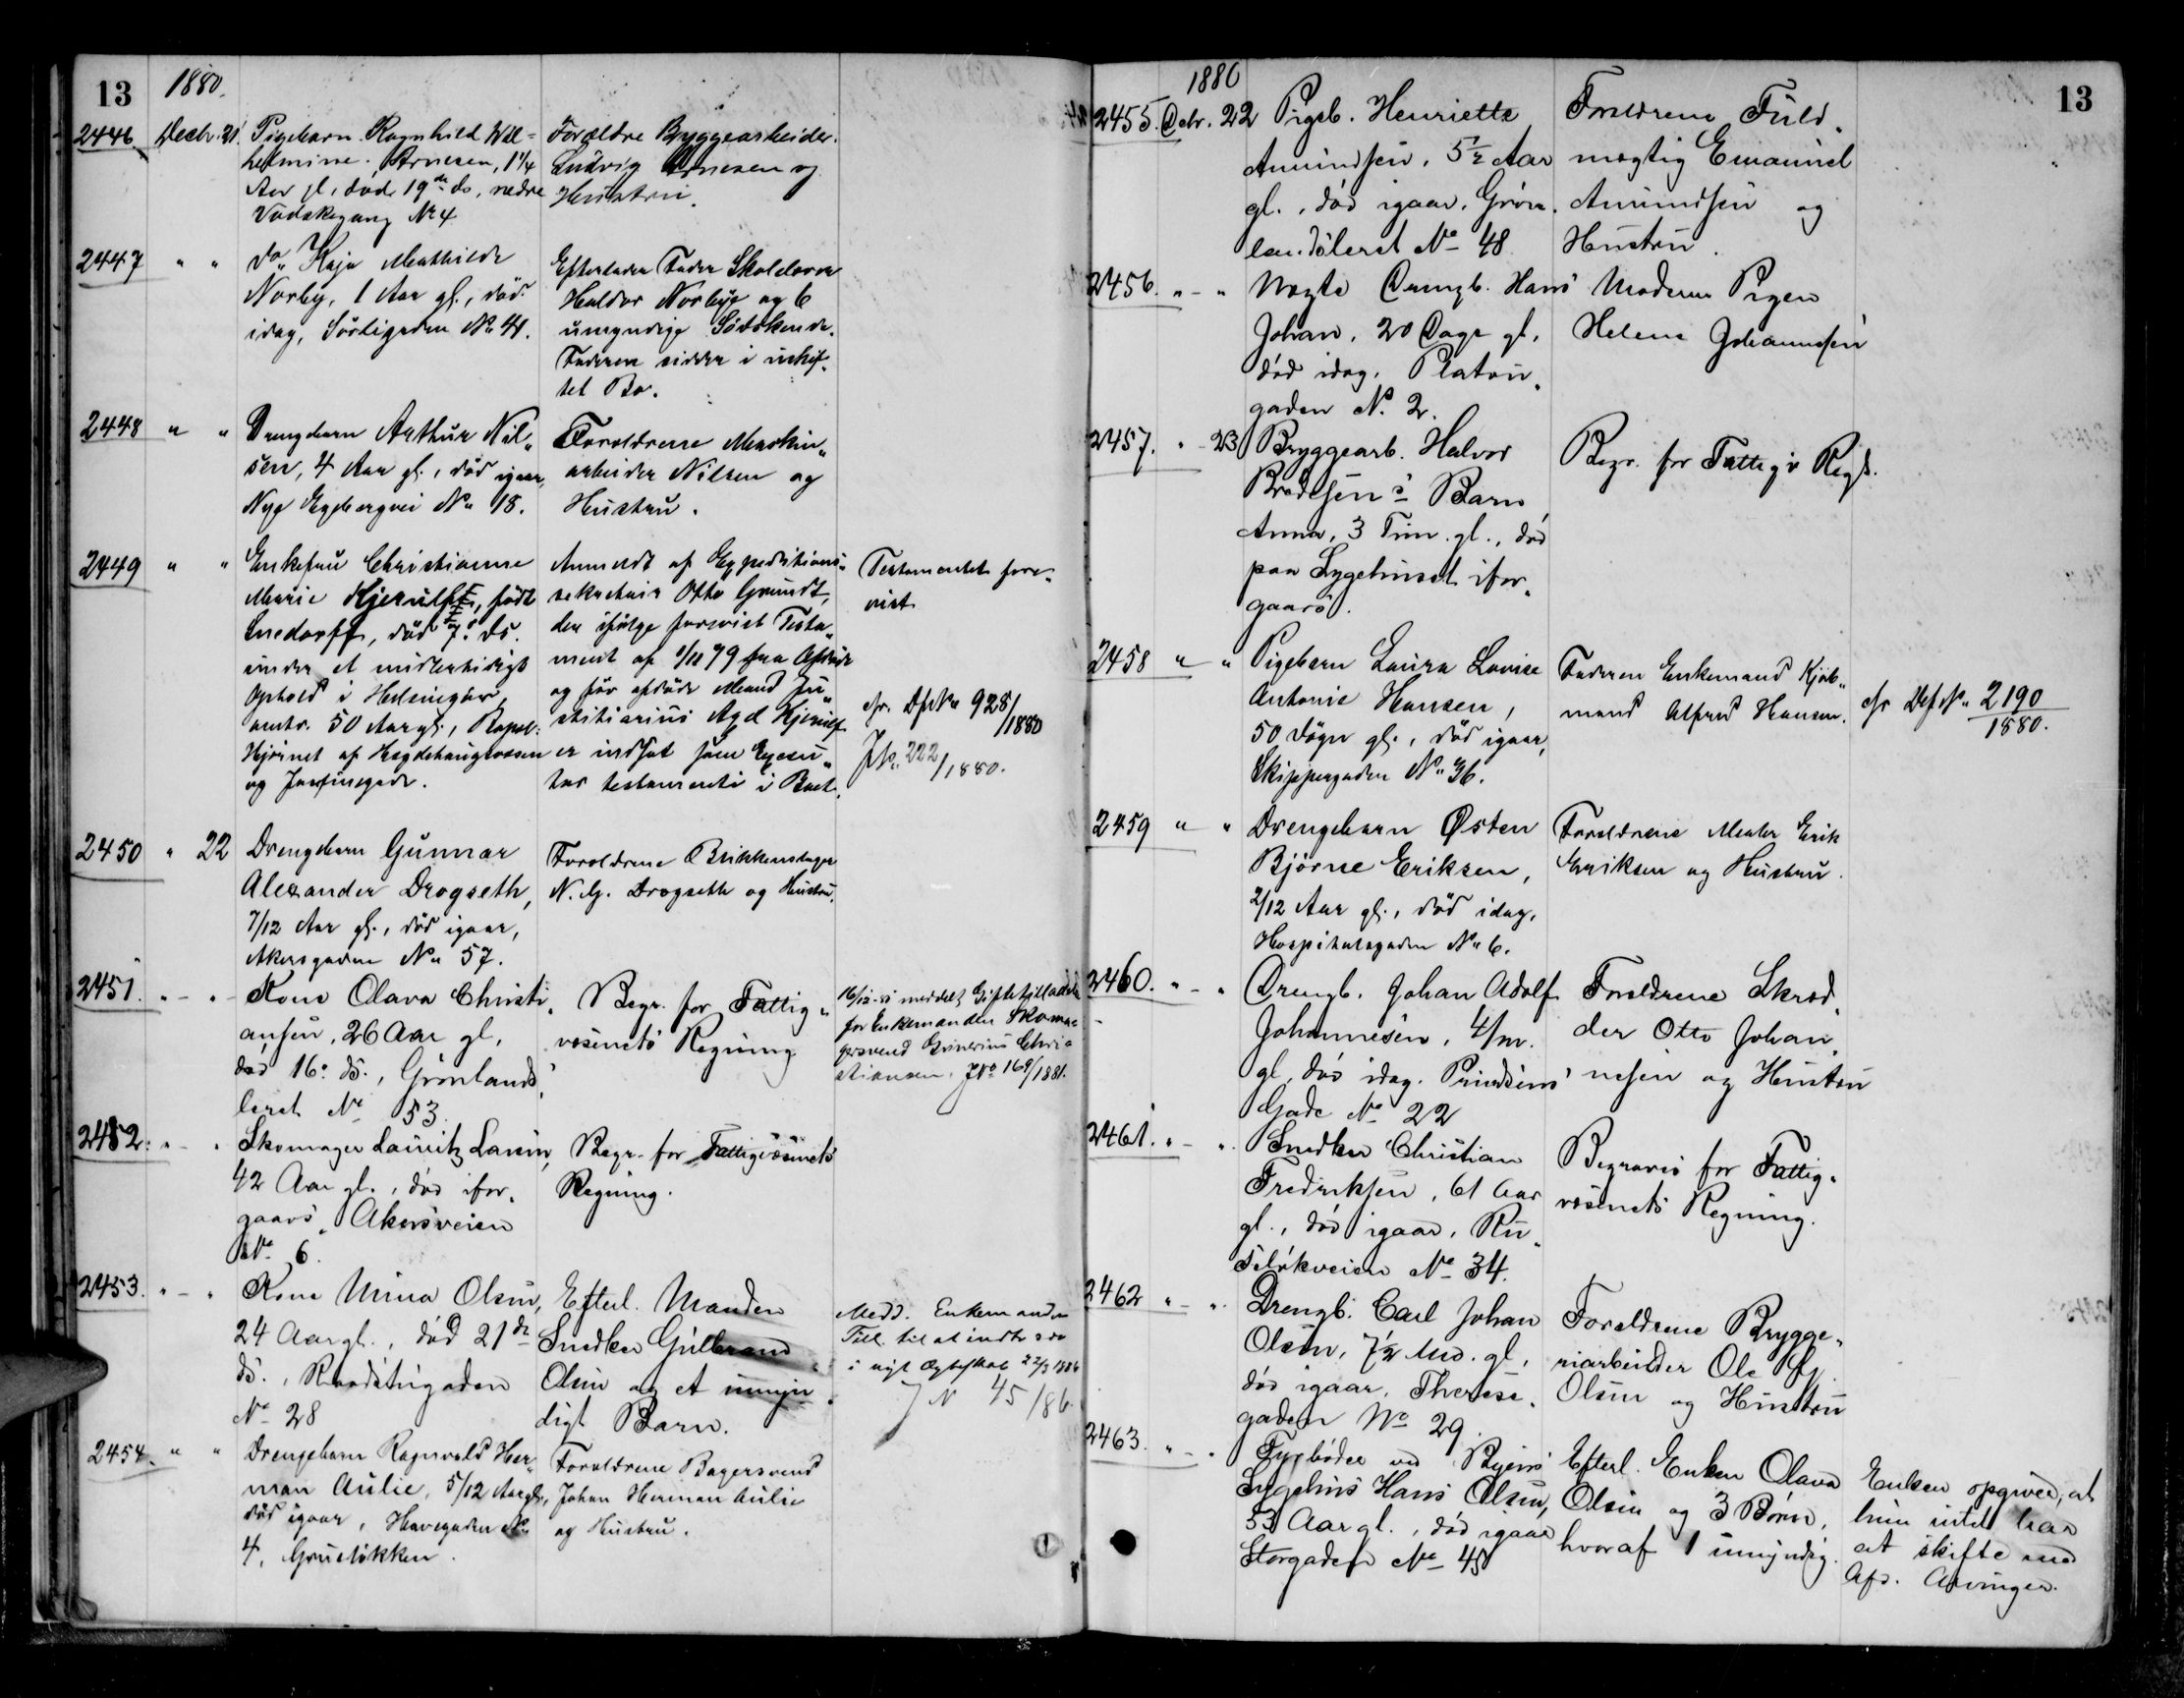 13
1880.
2446
Decbr. 21.
Pigebarn Ragnhild Wil-
helmine Arnesen, 1 1/4
Aar gl., død 19de ds., nedre
Vadskegang No 4
Forældre Bryggearbeider
Ludvig Arnesen og
Hustru.
2447 " "
do Kaja Mathilde
Norby, 1 Aar gl., død
idag, Sørligaden No 41.
Efterlader Fader Skolelærer
Haldor Norbye og 6
umyndige Sødskende.
Faderen sidder i uskif-
tet Bo.
2448 " "
Drengebarn Arthur Nil-
sen, 4 Aar gl., død igaar,
Nye Egebergvei No 18.
Forældrene Maskin-
arbeider Nilsen og
Hustru.
2449 " "
Enkefru Christianne
Marie Kjerulff, født
Snedorff, død 7. ds.
under et midlertidigt
Ophold i Helsingør,
50 Aar gl.,
Hjørnet af Hægdehaugveien
og Josefinegade.
Anmeldt af Expeditions-
sekretair Otto Grundt,
der ifølge forevist Testa-
ment af 79 fra Afdøde
og før afdøde Mand Ju-
stitiarius Kjerulf
er indsat som Execu-
tor testamenti i Boet.
Testamentet fore-
vist
cfr. Dfs No 928/1880
JNo. 222/1880.
2450 " 22
Drengebarn Gunnar
Alexander Drogseth,
7/12 Aar gl., død igaar,
Akersgaden No 57.
Forældrene Blikkenslager
N. G. Drogseth og Hustru.
2451. " - "
Kone Olava Christi-
ansen, 26 Aar gl.,
død 16. ds., Grønlands-
leret No 53.
Begr. for Fattig-
væsenets Regning
16/12-81 meddelt Giftetilladelse
for Enkemanden Skomag-
ersvend Chri-
stiansen. JNo 169/1881.
2452. " - "
Skomager Lauritz Larsen,
42 Aar gl., død ifor-
gaars, Akersveien
No 6.
Begr. for Fattigvæsenets
Regning.
2453. " - "
Kone Mina Olsen,
24 Aar gl., død 21de
ds., Raadstugaden
No 28
Efterl. Manden
Snedker Gulbrand
Olsen og et umyn-
digt Barn.
Medd. Enkemanden
Till. til at indtræde
i nyt Ægteskab 22/3 1886
JN 45/86.
2454. " "
Drengebarn Ragnvald Her-
man Aulie, 5/12 Aar gl.,
død igaar, Havegaden No
4, Grünerløkken.
Forældrene Bagersvend
Johan Herman Aulie
og Hustru.
13
1880
2455. Dcbr. 22
Pigeb. Henriette
Amundsen, 5 1/2 Aar
gl., død igaar, Grøn-
landsleret No 48
Forældrene Fuld-
mægtig Emanuel
Amundsen og
Hustru.
2456. " - "
Uægte Drengb. Hans
Johan, 20 Dage gl.,
død idag, Platou-
gaden No. 2.
Moderen Pigen
Helene Johannesen
2457. " - 23
Bryggearb. Halvor
Bredesen's Barn
Anna, 3 Tim. gl., død
paa Sygehuset ifor-
gaars.
Begr. for Fattigv. Regn.
2458 " "
Pigebarn Laura Lovise
Antonie Hansen,
50 Døgn gl., død igaar,
Skippergaden No 36.
Faderen Enkemand Kjøb-
mand Alfred Hansen.
cfr Dsf No 2190
1880.
2459 " "
Drengebarn Østen
Bjørne Eriksen,
2/12 Aar gl., død idag,
Hospitalsgaden No 6.
Forældrene Maler Erik
Eriksen og Hustru.
2460. " - "
Drengb. Johan Adolf
Johannesen, 4/m.
gl., død idag. Prindsens
Gade No 22
Forældrene Skræd-
der Otto Johan-
nesen og Hustru
2461. " - "
Snedker Christian
Fredriksen, 61 Aar
gl., død igaar, Ru-
seløkveien No 34.
Begraves for Fattig-
væsenets Regning.
2462 " - "
Drengb. Carl Johan
Olsen, 7 1/2 Md. gl.,
død igaar, Therese-
gaden No 29.
Forældrene Brygge-
riarbeider Ole
Olsen og Hustru
2463. " - "
Fyrbøder ved Byens
Sygehus Hans Olsen,
53 Aar gl., død igaar
Storgaden No 45
Efterl. Enken Olava
Olsen og 3 Børn,
hvoraf 1 umyndig.
Enken opgiver, at
hun intet har
at skifte med
Afd. Arvinger.